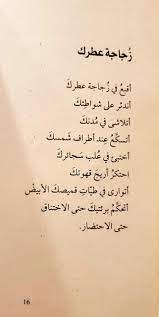 زُجاجة عطرك
أقبعُ في زُجاجة عطركَ
أندثر على شواطئِكَ
أتلاشى في مُدنكَ
أتسكّعُ عِند أطراف شمسكَ
أختبئ في عُلب سجائركَ
احتكرُ أريجَ قهوتكَ
أتوارى في طيّات قميصكَ الأبيضْ
أتحكّمُ برئتيكَ حتى الاختناق
حتى الاحتضار.
16